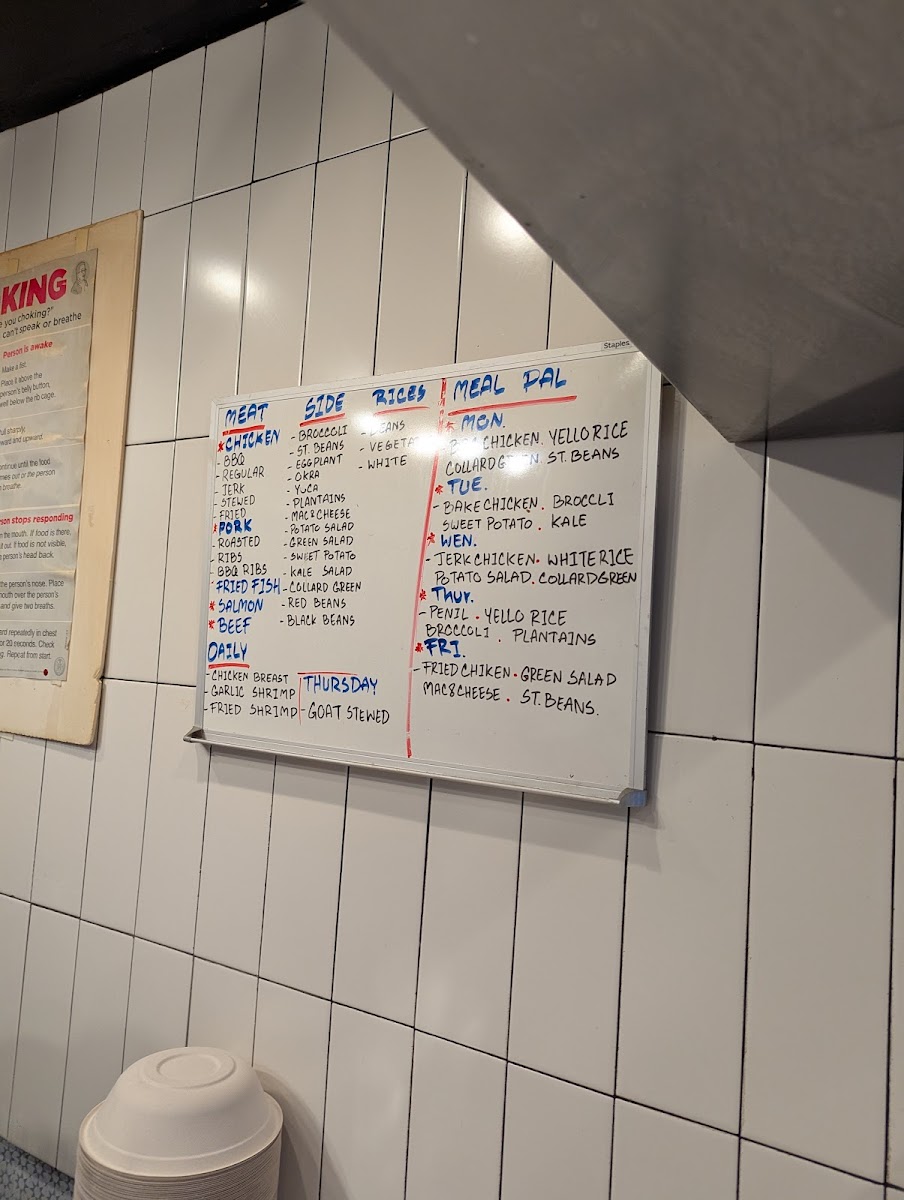 KING
you choking?"
can't speak or breathe
Person is awake
Make a fist.
Place it above the
person's belly button,
well below the rib cage.
sharply,
and upward.
until the food
out or the person
breathe.
stops responding
the mouth. If food is there,
it out. If food is not visible,
person's head back,
the person's nose. Place
mouth over the person's
and give two breaths.
repeatedly in chest
20 seconds. Check
Repeat from start.
Staples
MEAT
*CHICKEN
- BBQ
- REGULAR
- JERK
- STEWED
- FRIED
*PORK
- ROASTED
RIBS
- BBQ RIBS
*FRIED FISH
*SALMON
*BEEF
DAILY
- CHICKEN BREAST
- GARLIC SHRIMP
- FRIED SHRIMP
SIDE
- BROCCOLI
- ST. BEANS
- EGGPLANT
- OKRA
- YUCA
- PLANTAINS
- MAC&CHEESE
- POTATO SALAD
- GREEN SALAD
- SWEET POTATO
- KALE SALAD
- COLLARD GREEN
- RED BEANS
- BLACK BEANS
THURSDAY
- GOAT STEWED
RICES
- BEANS
- VEGETA
- WHITE
MEAL PAL
* MON.
CHICKEN. YELLO RICE
COLLARD GREEN. ST. BEANS
* TUE.
- BAKE CHICKEN. BROCCLI
SWEET POTATO. KALE
* WEN.
- JERK CHICKEN. WHITE RICE
POTATO SALAD. COLLARD GREEN
* THUR.
- PENIL. YELLO RICE
BROCCOLI. PLANTAINS
* FRI.
- FRIED CHIKEN. GREEN SALAD
MAC&CHEESE. ST. BEANS.